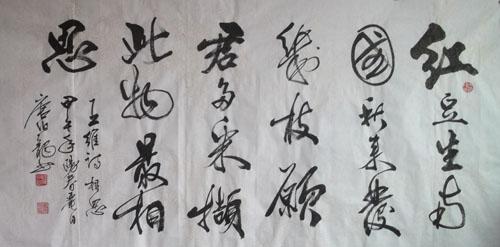 红豆生南
國秋来發
幾枝願
君多采擷
此物最相
思
王维诗相思
甲午年